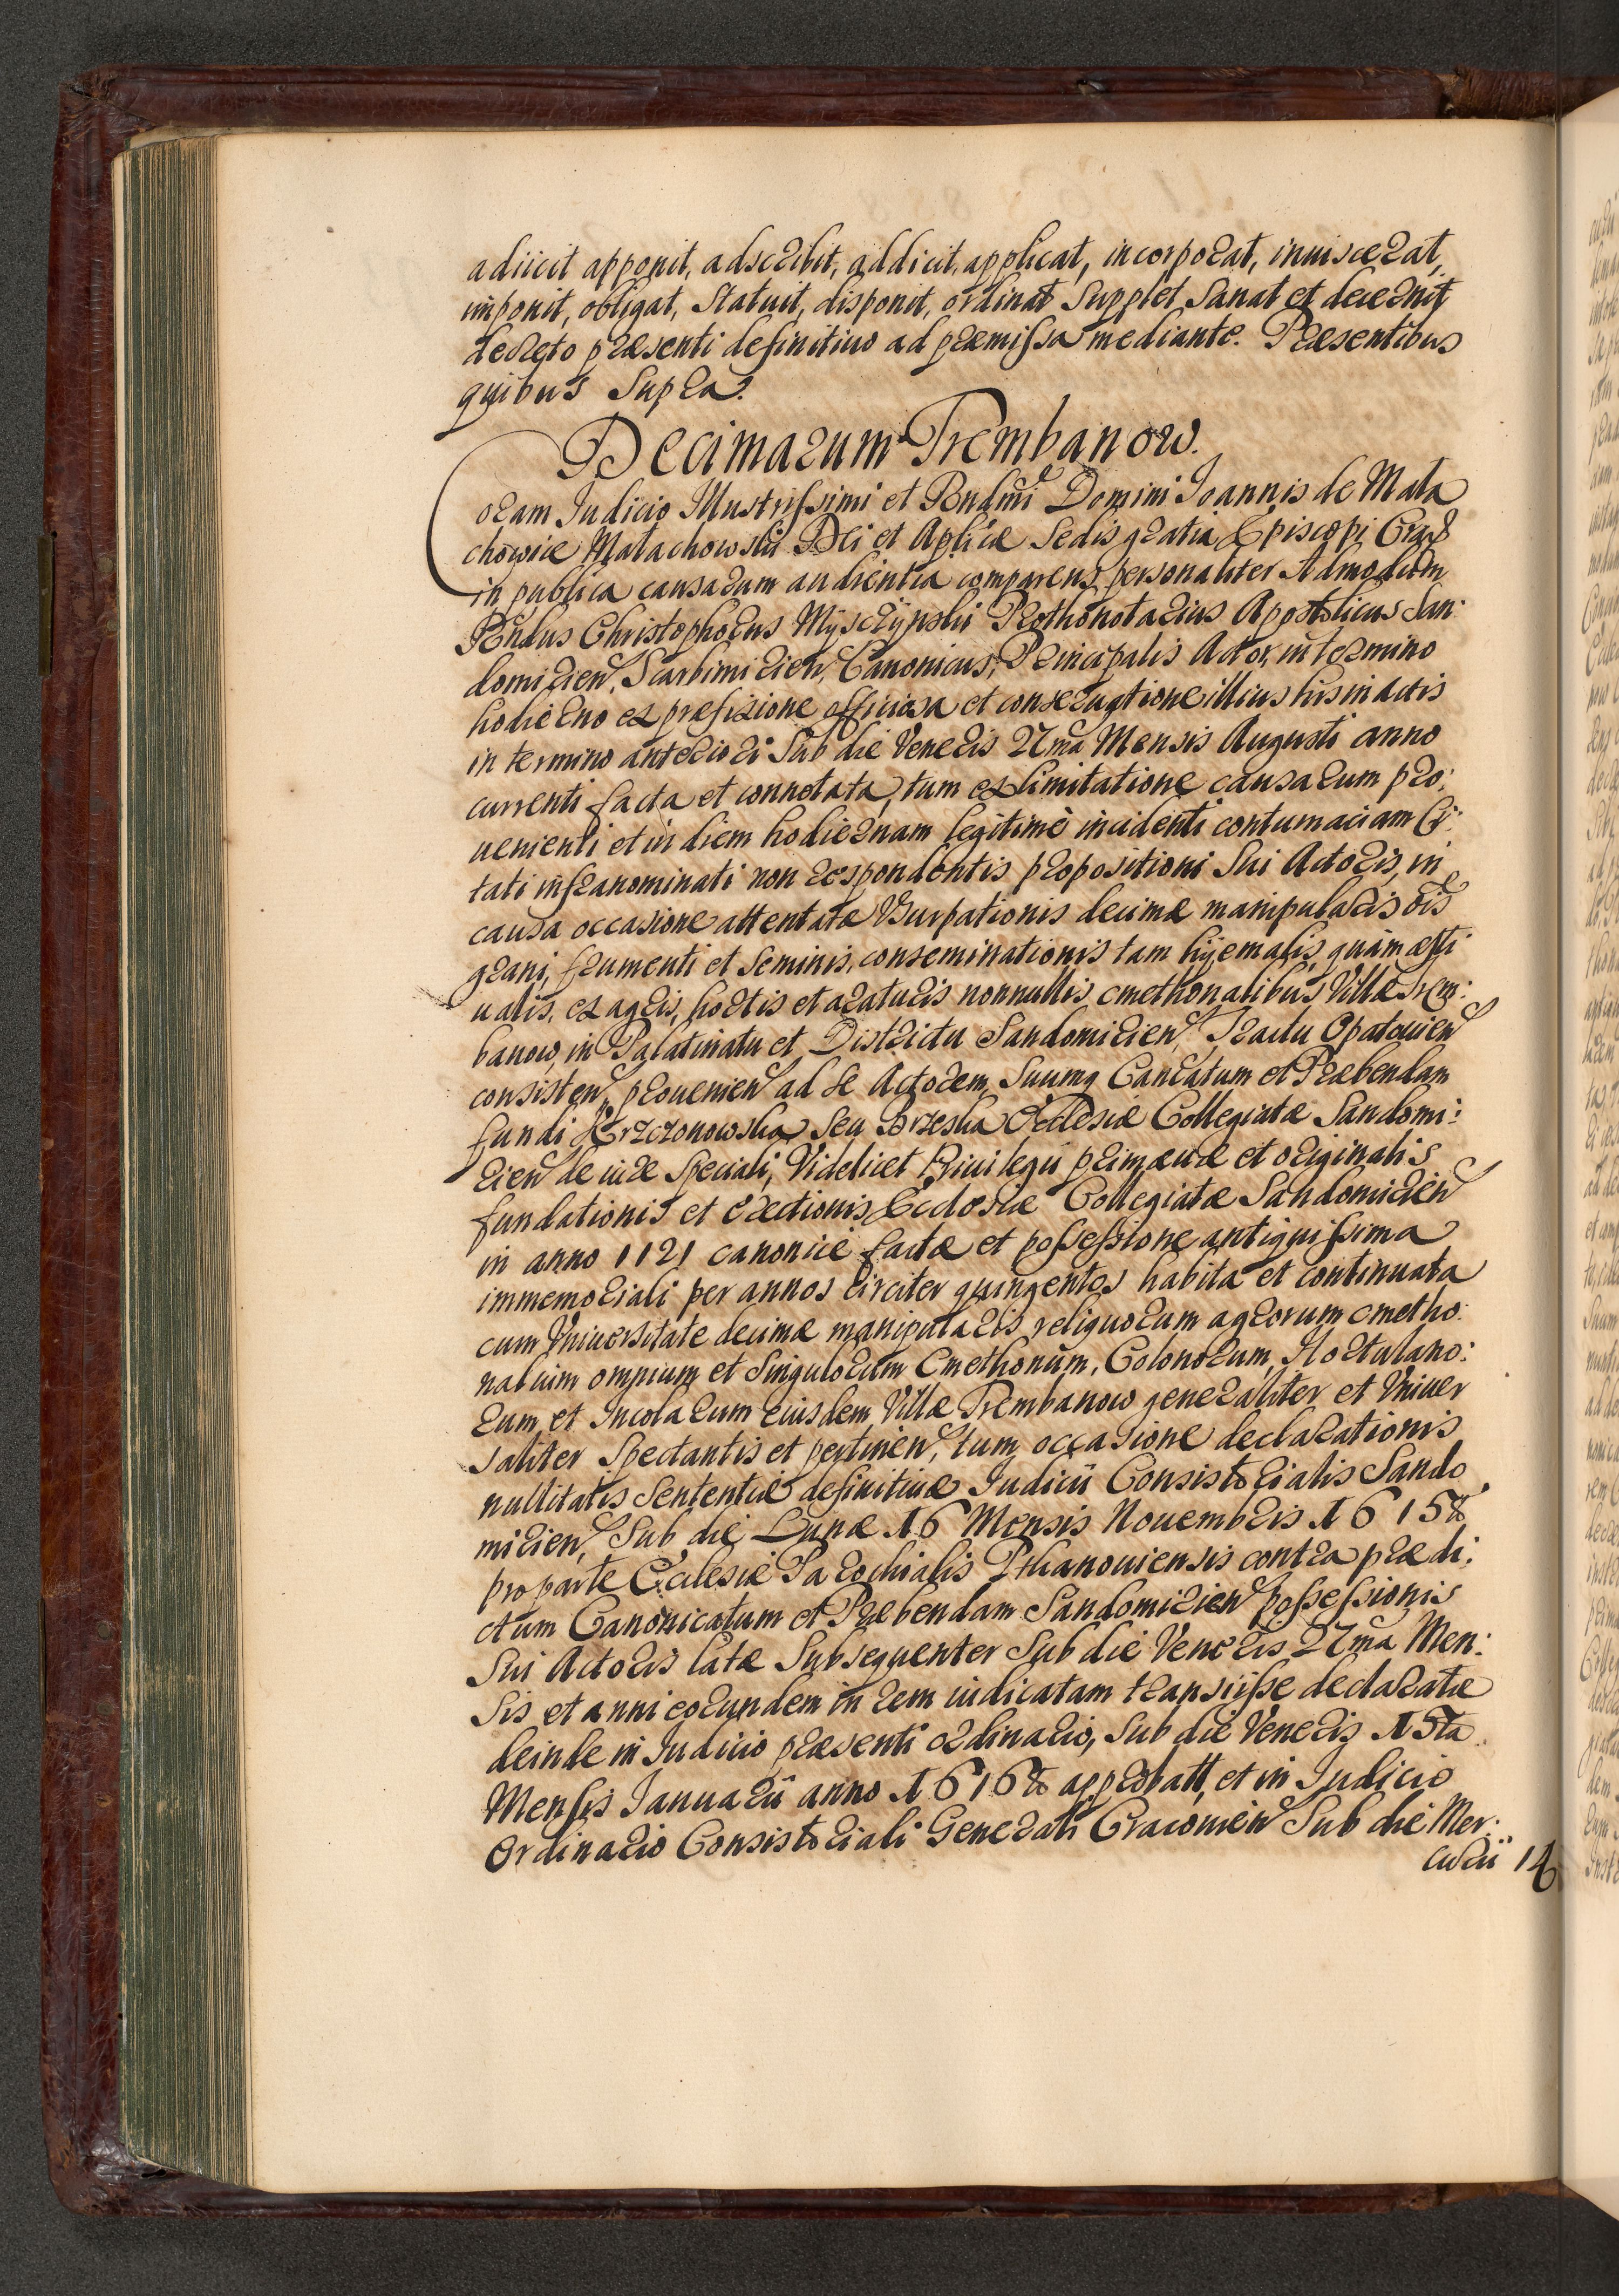 adiicit apponit, adscribit, addicit, applicat, incorporat, inuiscerat,
imponit, obligat, Statuit, disponit, ordinat Supplet Sanat et decernit
decreto præsenti definitiuo ad præmissa mediante. Præsentibus
quibus Supra.
Decimarum Trembanow.
Coram Iudicio Illustrissimi et Rndmi Domini Ioannis de Mala
chowice Malachowski Dei et Aplicæ Sedis gratia Episcopi Crac
in publica causarum audientia comparens personaliter Admodum
Rndus Christophorus Mysczynski Prothonotarius Apostolicus San:
domirien, Scarbimirien, Canonicus, Principalis Actor, in termino
hodierno ex præfixione officiosa et conseruatione illius his in actis
in termino anteriori Sub die Veneris 27ma Mensis Augusti anno
currenti facta et connotata, tum ex limitatione causarum pro:
uenienti et in diem hodiernam legitimè incidenti contumaciam Ci:
tati infranominati non respondentis propositioni Sui Actoris, in
causa occasione attentatæ Vsurpationis decimæ manipularis ois
grani, frumenti et Seminis, conseminationis tam hyemalis, quàm æsti
ualis, ex agris, hortis et araturis nonnullis cmethonalibus Villæ Trem:
banow, in Palatinatu et Districtu Sandomirien, Tractu Opatouien
consisten, prouenien ad Se Actorem Suumq Canratum et Præbendam
fundi Krzczonowska Seu Brzeska Ecclesiæ Collegiatæ Sandomi:
rien de iure Speciali, Videlicet Priuilegii primæuæ et originalis
fundationis et erectionis Ecclesiæ Collegiatæ Sandomirien
in anno 1121 canonicè factæ et possessione antiquissima
immemoriali per annos circiter quingentos habita et continuata
cum Vniuersitate decimæ manipularis reliquorum agrorum cmetho:
nalium omnium et Singulorum Cmethonum, Colonorum, Hortulano:
rum et Incolarum eiusdem Villæ Trembanow generaliter et Vniuer
saliter Spectantis et pertinen, tum occasione declarationis
nullitatis Sententiæ definitiuæ Iudicii Consistorialis Sando
mirien, Sub die Lunæ 16 Mensis Nouembris 1615to
pro parte Ecclesiæ Parochialis Ptkanouiensis contra prædi:
ctum Canonicatum et Præbendam Sandomirien possessionis
Sui Actoris latæ Subsequenter Sub die Veneris 27ma Men:
sis et anni eorundem in rem iudicatam transiisse declaratæ
deinde in Iudicio præsenti ordinario, Sub die Veneris 15ta
Mensis Ianuarii anno 1616to approbatt, et in Iudicio
Ordinario Consistoriali Generali Cracouien Sub die Mer:
curii 14